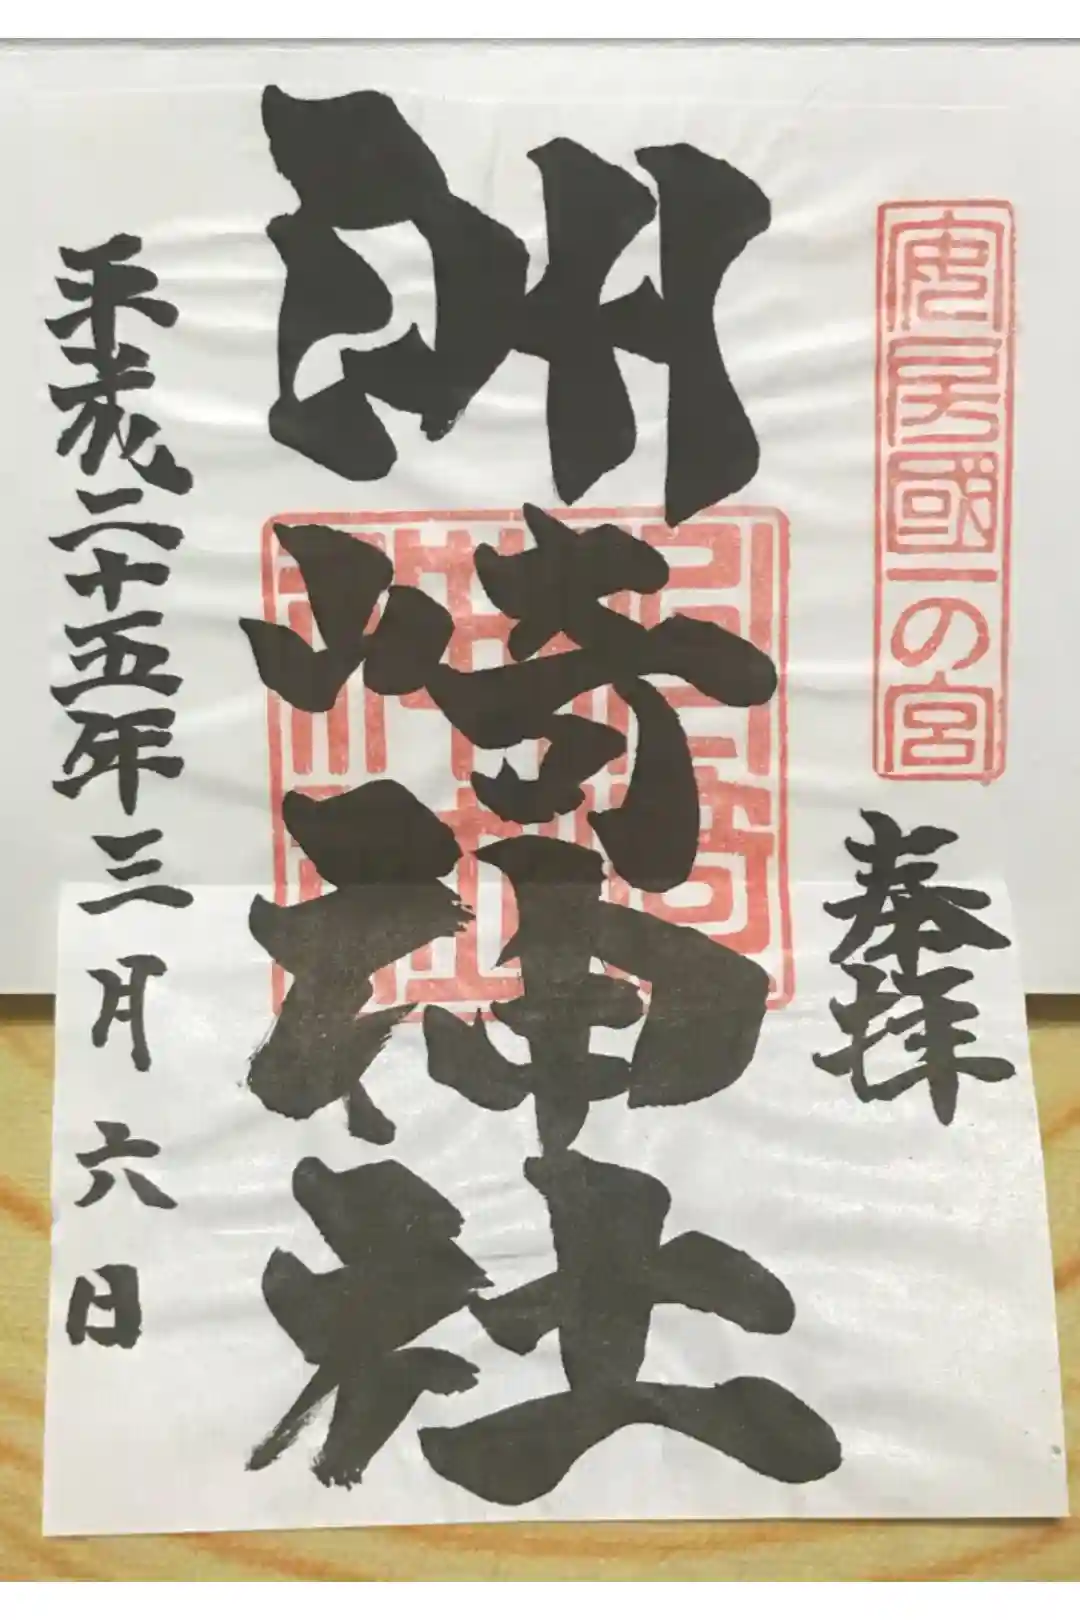 安房國一の宮
奉拝
洲崎神社
平成二十五年三月六日